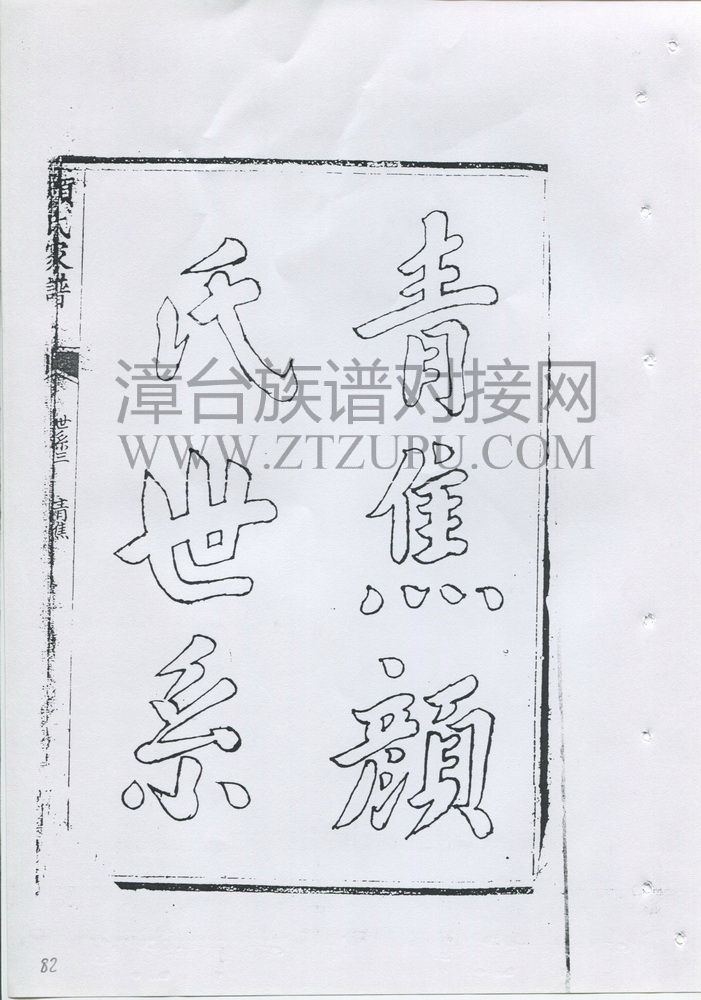 青焦顔
氏世系
顔氏家譜
世系三 青焦
漳台族谱对接网
WWW.ZTZUPU.COM
82